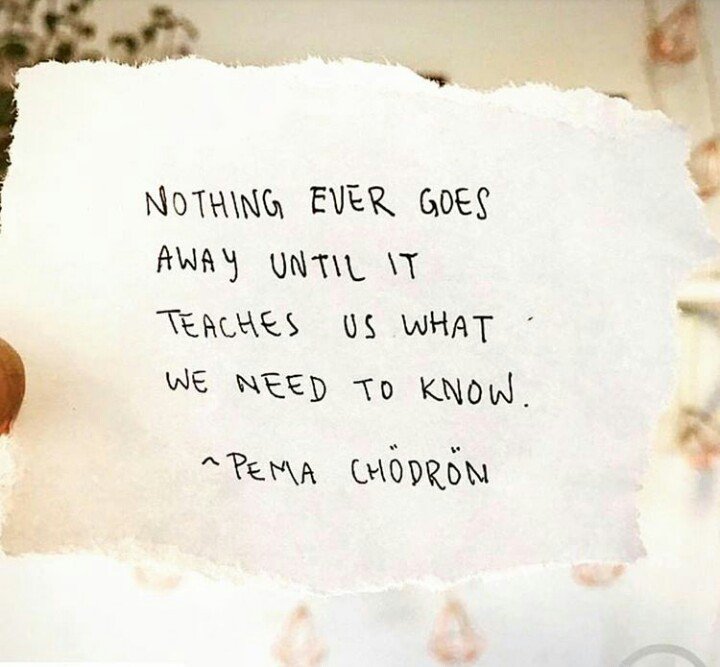 NOTHING EVER GOES
AWAY UNTIL IT
TEACHES US WHAT
WE NEED TO KNOW.
~PEMA CHÖDRÖN